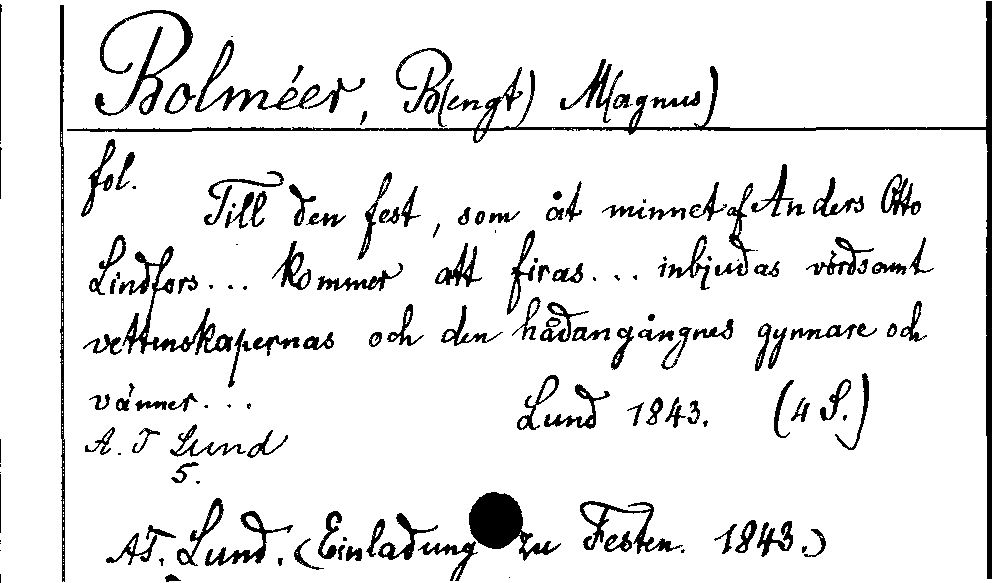 Bolméer, B(engt) M(agnus)
fol.
Till den fest, som åt minnet af Anders Otto
Lindfors... kommer att firas... inbjudas vördsamt
vettenskapernas och den hädangångnes gynnare och
vänner...
Lund 1843. (4 S.)
A. T Lund
5.
AT. Lund. (Einladung zu Festen. 1843.)